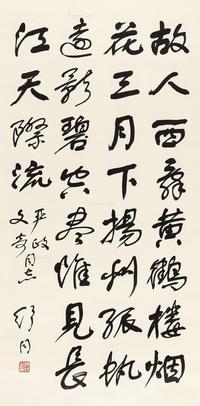 故人西辞黄鶴樓烟
花三月下揚州孤帆
遠影碧空尽惟見長
江天際流
严政同志
文奇
舒同